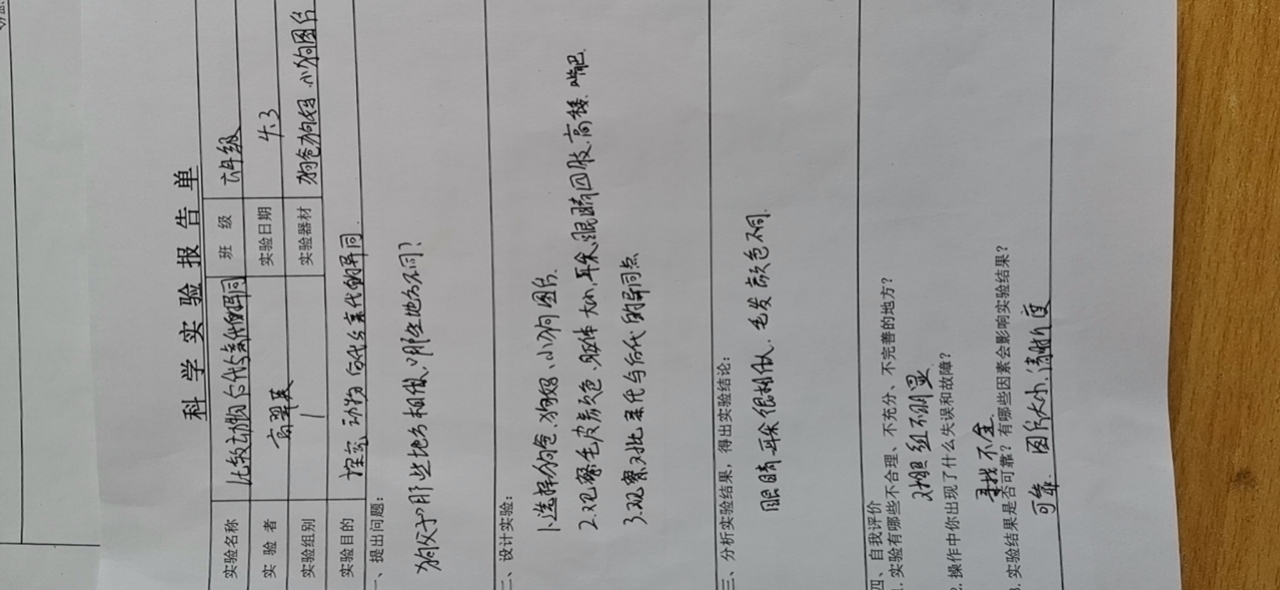 科学实验报告单
实验名称 比较动物后代与亲代的异同 班级 六年级
实验者 高翠英 实验日期 4.3
实验组别 1 实验器材 狗爸狗妈 小狗图片
实验目的 探究动物后代与亲代的异同.
一、提出问题:
狗父子哪些地方相似,哪些地方不同?
二、设计实验:
1.选择狗爸、狗妈、小狗图片.
2.观察毛皮颜色、躯体大小、耳朵、眼睛、四肢、高矮、嘴吧.
3.观察对比亲代与后代的异同点
三、分析实验结果,得出实验结论:
眼睛、耳朵很相似、毛发颜色不同.
四、自我评价
1.实验有哪些不合理、不充分、不完善的地方?
对照组不明显
2.操作中你出现了什么失误和故障?
寻找不全
3.实验结果是否可靠?有哪些因素会影响实验结果?
可靠 图片大小,清晰度